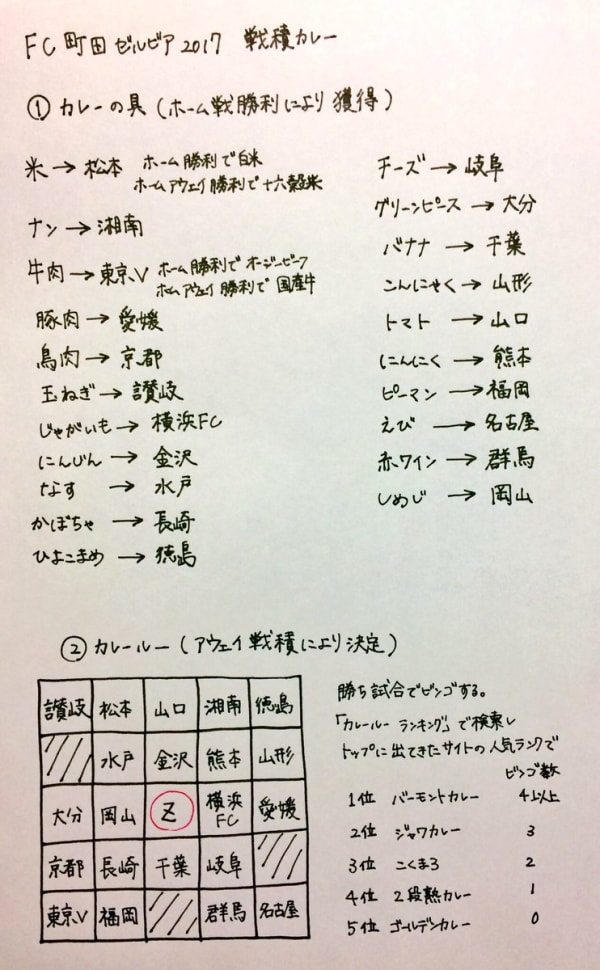 FC町田ゼルビア2017 戦積カレー
① カレーの具（ホーム戦勝利により獲得）
米 → 松本 ホーム勝利で白米
ホームアウェイ勝利で十六穀米
ナン → 湘南
牛肉 → 東京V ホーム勝利でオージービーフ
ホームアウェイ勝利で国産牛
豚肉 → 愛媛
鳥肉 → 京都
玉ねぎ → 讃岐
じゃがいも → 横浜FC
にんじん → 金沢
なす → 水戸
かぼちゃ → 長崎
ひよこまめ → 徳島
チーズ → 岐阜
グリーンピース → 大分
バナナ → 千葉
こんにゃく → 山形
トマト → 山口
にんにく → 熊本
ピーマン → 福岡
えび → 名古屋
赤ワイン → 群馬
しめじ → 岡山
② カレールー（アウェイ戦積により決定）
讃岐 松本 山口 湘南 徳島
水戸 金沢 熊本 山形
大分 岡山 Z 横浜FC 愛媛
京都 長崎 千葉 岐阜
東京V 福岡 群馬 名古屋
勝ち試合でビンゴする。
「カレールー ランキング」で検索し
トップに出てきたサイトの人気ランクで
ビンゴ数
1位 バーモントカレー 4以上
2位 ジャワカレー 3
3位 こくまろ 2
4位 2段熟カレー 1
5位 ゴールデンカレー 0